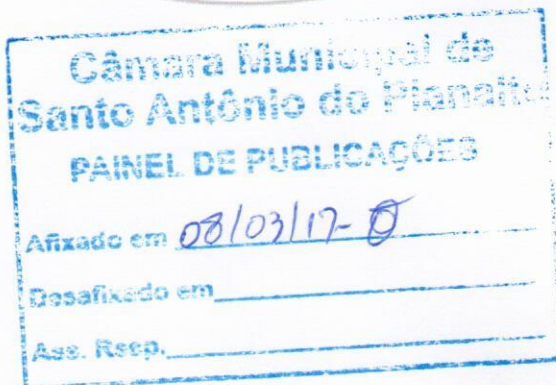 Câmara Municipal de
Santo Antônio do Planalto
PAINEL DE PUBLICAÇÕES
Afixado em 08/03/17-
Desafixado em
Ass. Resp.